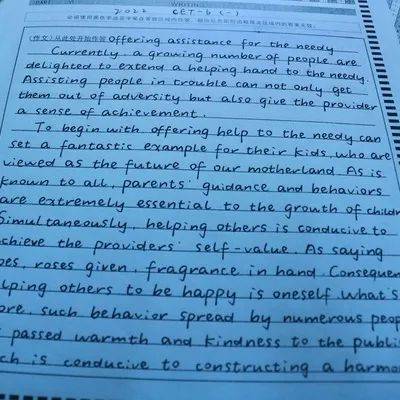 WRITING
2022 CET-6 (一)
(作文)从此处开始作答 Offering assistance for the needy
Currently, a growing number of people are
delighted to extend a helping hand to the needy.
Assisting people in trouble can not only get
them out of adversity but also give the provider
a sense of achievement.
To begin with offering help to the needy can
set a fantastic example for their kids, who are
viewed as the future of our motherland. As is
known to all, parents' guidance and behaviors
are extremely essential to the growth of childr
Simultaneously, helping others is conducive to
chieve the providers' self-value. As saying
oes, roses given, fragrance in hand. Consequen
lping others to be happy is oneself. What's
ore, such behavior spread by numerous peop
passed warmth and kindness to the publi
ch is conducive to constructing a harmo